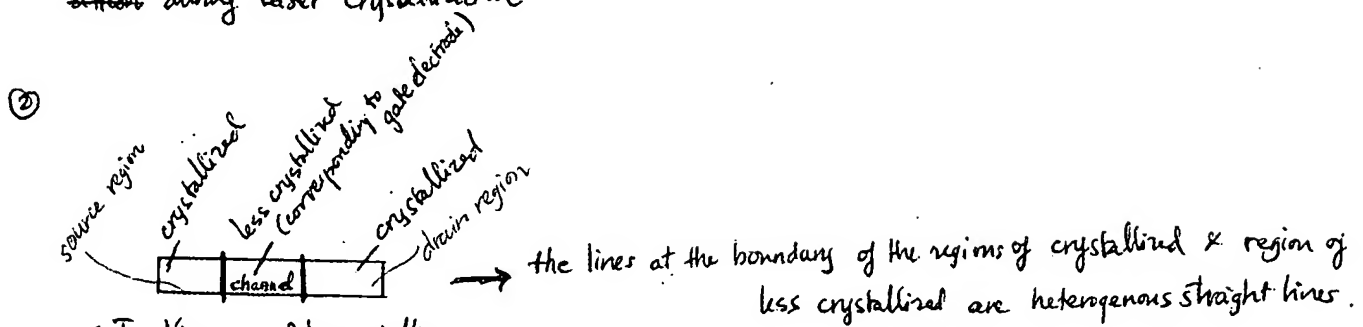 during laser
②
source region
crystallized
less crystallized
(corresponding to
gate electrode)
crystallized
drain region
channel
→ the lines at the boundary of the regions of crystallized & region of
less crystallized are heterogenous straight lines.